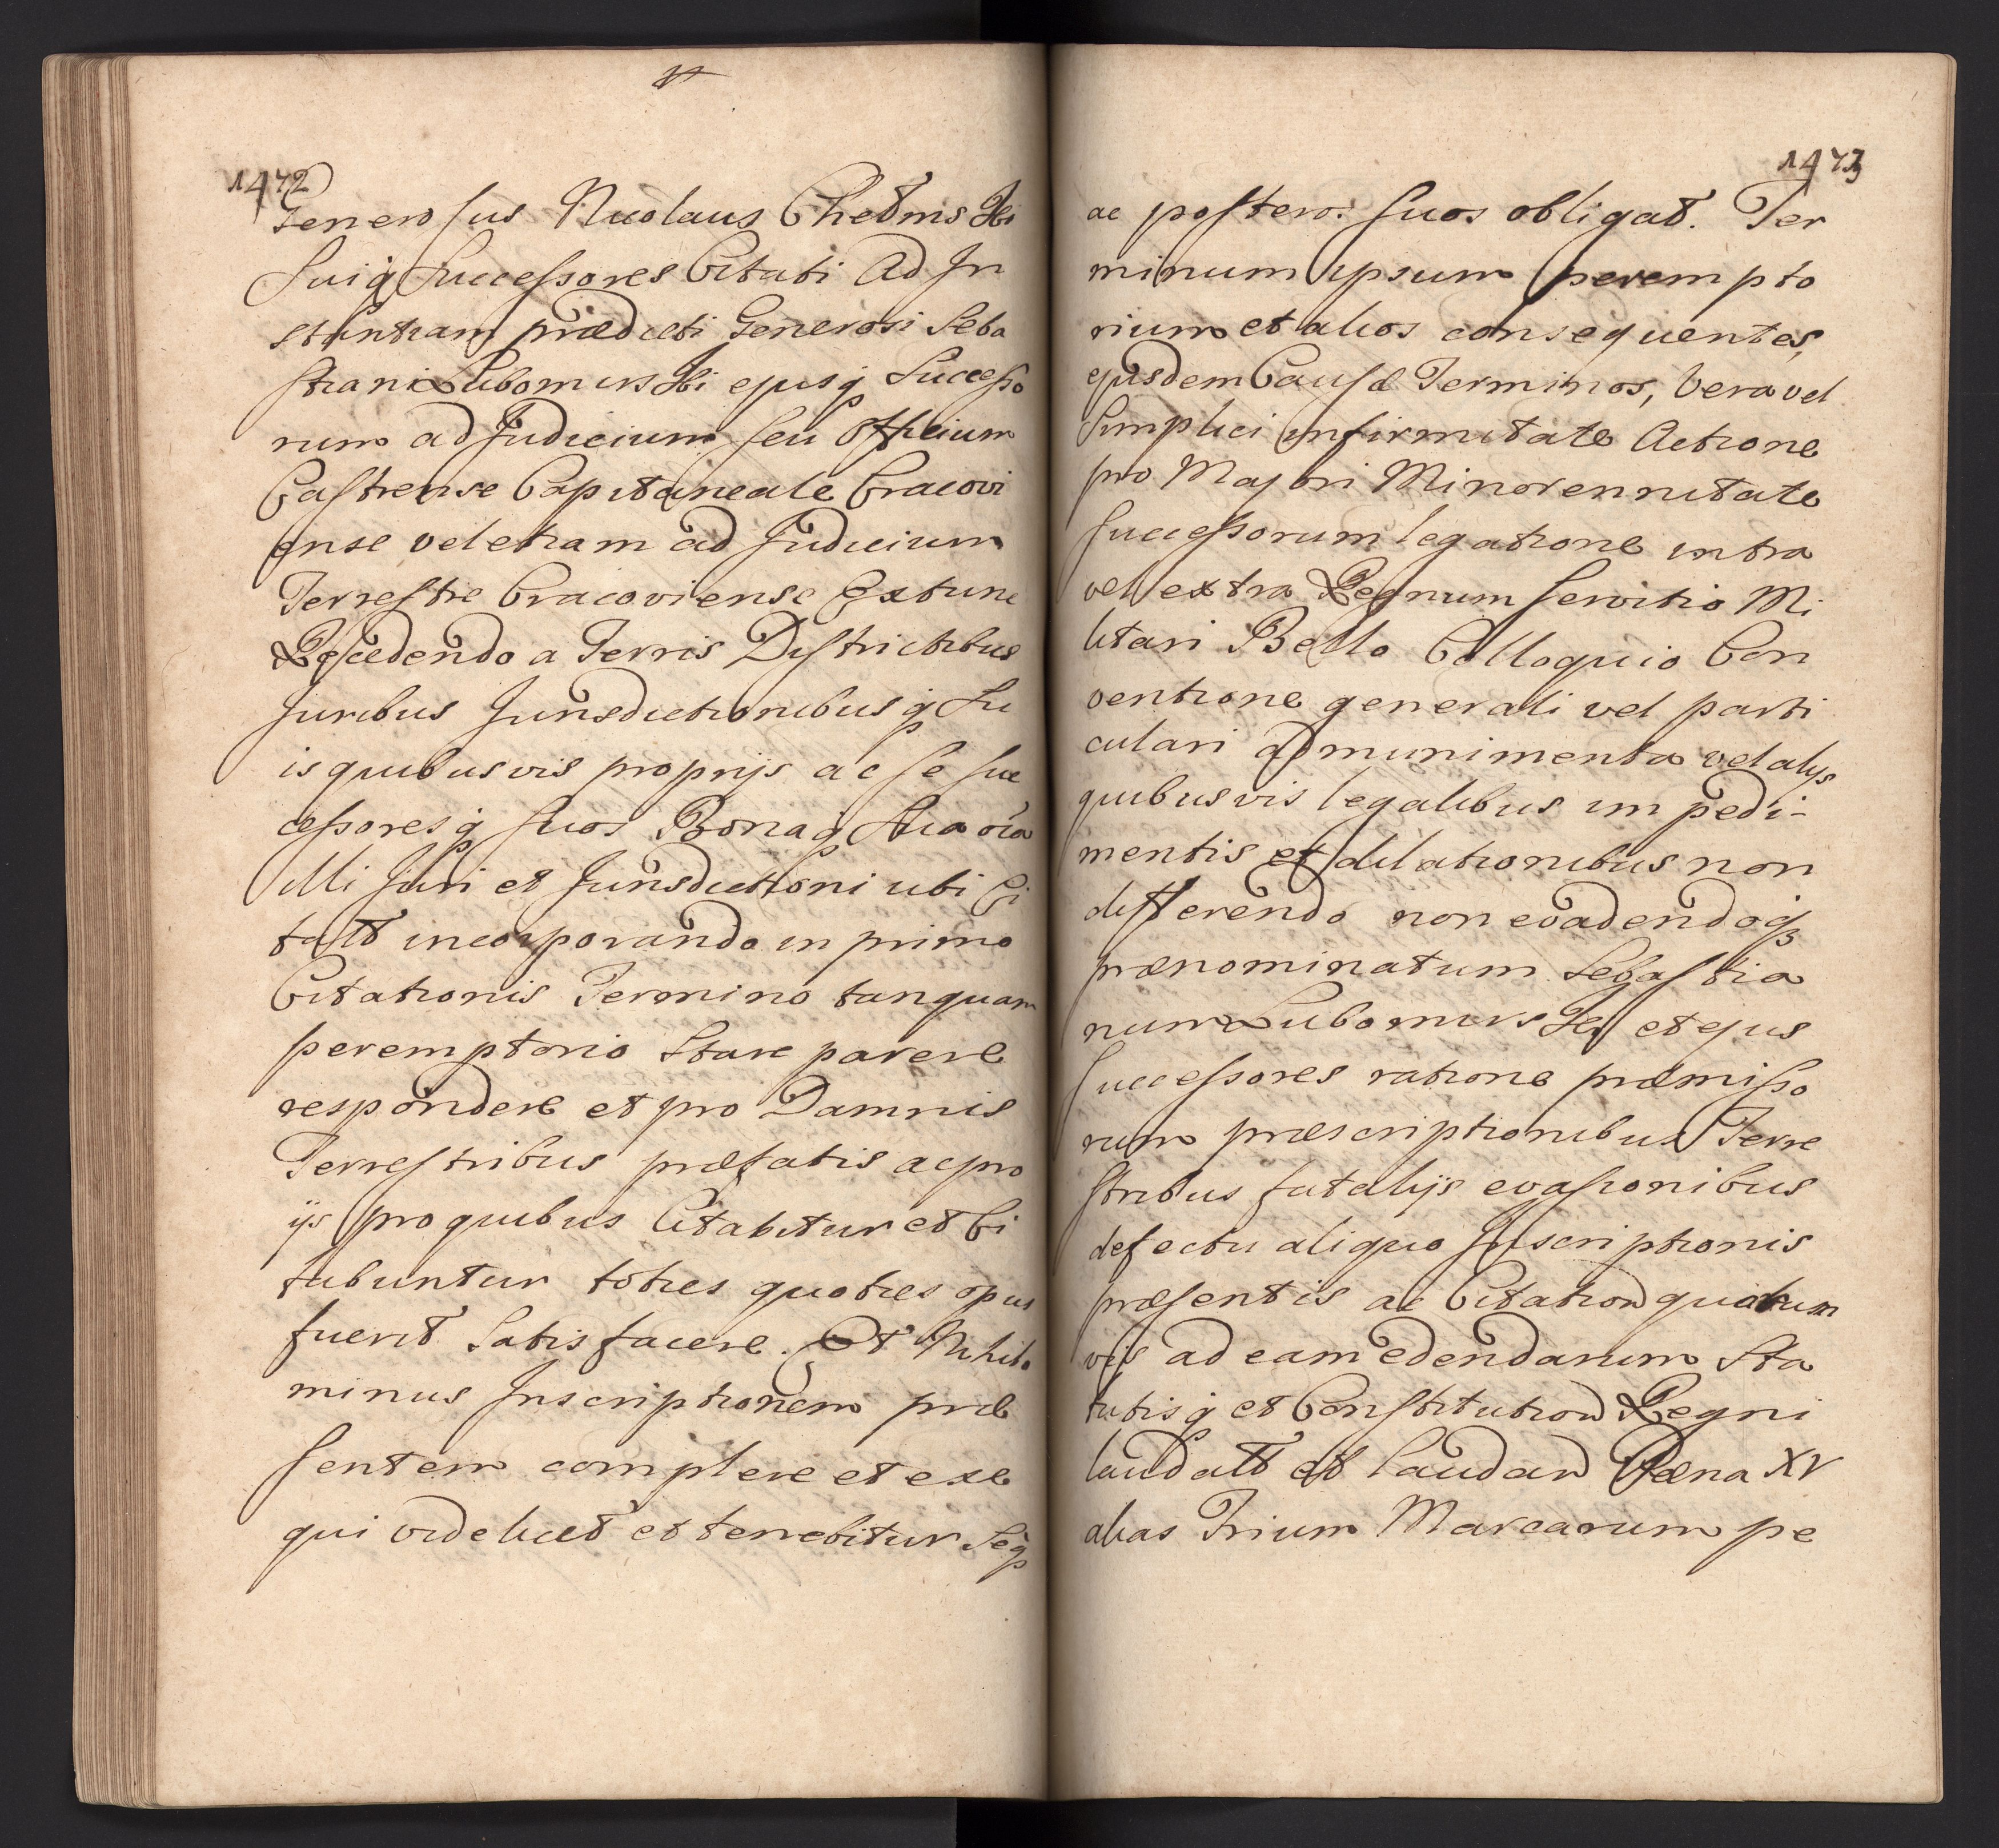 1472
Generosus Nicolaus Chełmski
Suiq Successores Citati Ad In
stantiam prædicti Generosi Seba
stiani Lubomirski ejusq Successo
rum ad Judicium seu Officium
Castrense Capitaneale Cracovi
ense vel etiam ad Judicium
Terrestre Cracoviense Extunc
Recedendo a Terris Districtibus
Juribus Jurisdictionibusq Su
is quibusvis proprijs ac se suc
cessoresq suos Bonaq Sua oĩa
illi Juri et Jurisdictioni ubi Ci
tatt incorporando in primo
Citationis Termino tanquam
peremptorio Stare parere
respondere et pro Damnis
Terrestribus præfatis ac pro
ijs pro quibus Citabitur et Ci
tabuntur toties quoties opus
fuerit Satisfacere. Et Nihilo
minus Inscriptionem præ
sentem complere et exe
qui videlicet et tenebitur Seq
1473
ac posteros suos obligat. Ter
minum ipsum perempto
rium et alios consequentes,
ejusdem Causæ Terminos, Vera vel
Simplici infirmitate Actione
pro Majori Minorennitate
successorum legatione intra
vel extra Regnum servitio Mi
litari Bello Colloquio Con
ventione generali vel parti
culari ad munimenta vel alijs
quibusvis legalibus impedi-
mentis et dilationibus non
differendo non evadendoq
prænominatum Sebastia
num Lubomirski et ejus
Successores ratione præmisso
rum præscriptionibus Terre
stribus fatalijs evasionibus
defectu aliquo Inscriptionis
præsentis ac Citation quarum
vis ad eam edendarum Sta
tutisq et Constitution Regni
laudatt et laudand Pæna XV
alias Trium Marcarum pe